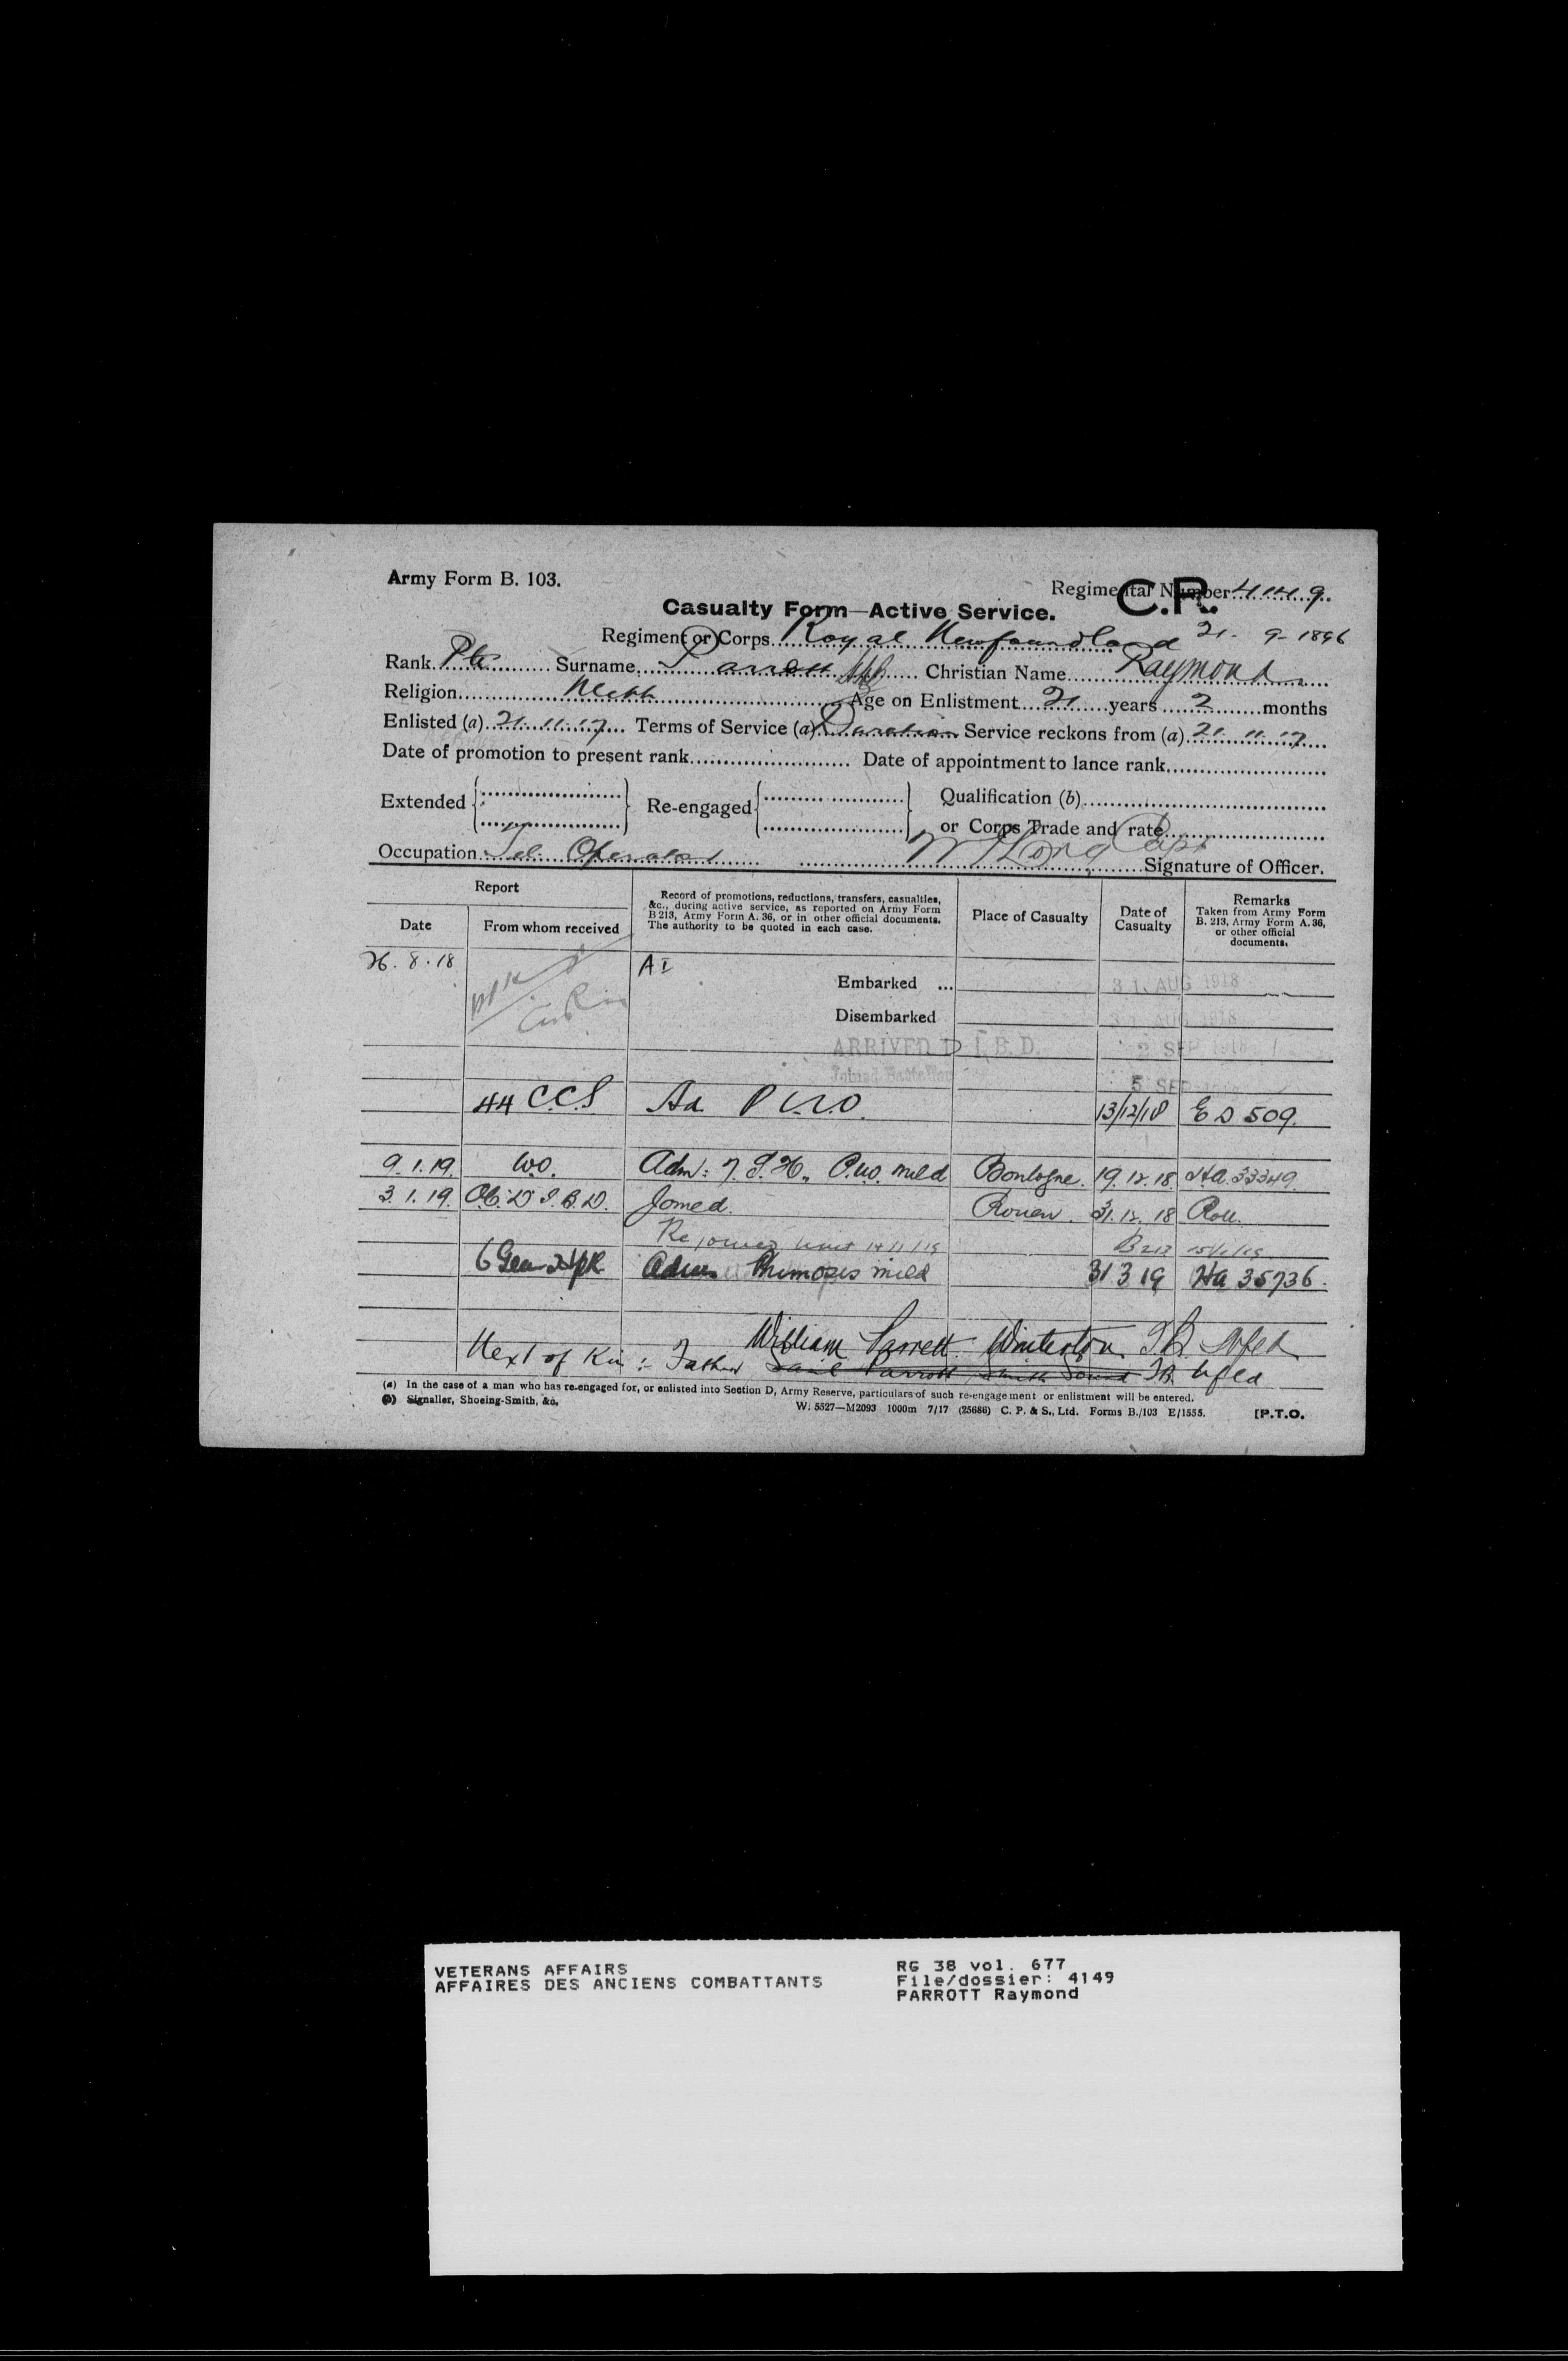 Army Form B. 103.
Regimental Number 4149.
C.R.
Casualty Form—Active Service.
Regiment or Corps Royal Newfoundland 21. 9-1896
Rank Pte Surname Parrott Christian Name Raymond
Religion Meth Age on Enlistment 21 years 2 months
Enlisted (a) 21.11.17 Terms of Service (a) Duration Service reckons from (a) 21.11.17
Date of promotion to present rank Date of appointment to lance rank
Extended Re-engaged Qualification (b)
or Corps Trade and rate
Occupation Tel. Operator Capt Signature of Officer.
Report
Date From whom received
Record of promotions, reductions, transfers, casualties, &c., during active service, as reported on Army Form B 213, Army Form A. 36, or in other official documents. The authority to be quoted in each case.
Place of Casualty
Date of Casualty
Remarks
Taken from Army Form B. 213, Army Form A. 36, or other official documents.
26.8.18 A I
Embarked ... 31 AUG 1918
Disembarked 31 AUG 1918
ARRIVED D I. B. D. 2 SEP 1918
Joined Battalion 5 SEP 1918
44 C.C.S Ad P.U.O. 13/12/18 E D 509.
9.1.19. W.O. Adm: 7. S.H. P.U.O. mild Boulogne. 19.12.18 Ha 33349.
3.1.19. O.C. D I.B.D. Joined. Rouen. 31.12.18 Roll.
Rejoined Unit 14/1/19 B213 15/1/19
6 Gen Hp R Adm Phimosis mild 31 3 19 Ha 35736.
William Parrett Winterton T.B. Nfld
Next of Kin: Father Parrott Smith Sound T.B. Nfld
(a) In the case of a man who has re-engaged for, or enlisted into Section D, Army Reserve, particulars of such re-engagement or enlistment will be entered.
(b) Signaller, Shoeing-Smith, &c.
W. 5527—M2093 1000m 7/17 (25686) C. P. & S., Ltd. Forms B./103 E/1555. [P.T.O.
VETERANS AFFAIRS
AFFAIRES DES ANCIENS COMBATTANTS
RG 38 vol. 677
File/dossier: 4149
PARROTT Raymond